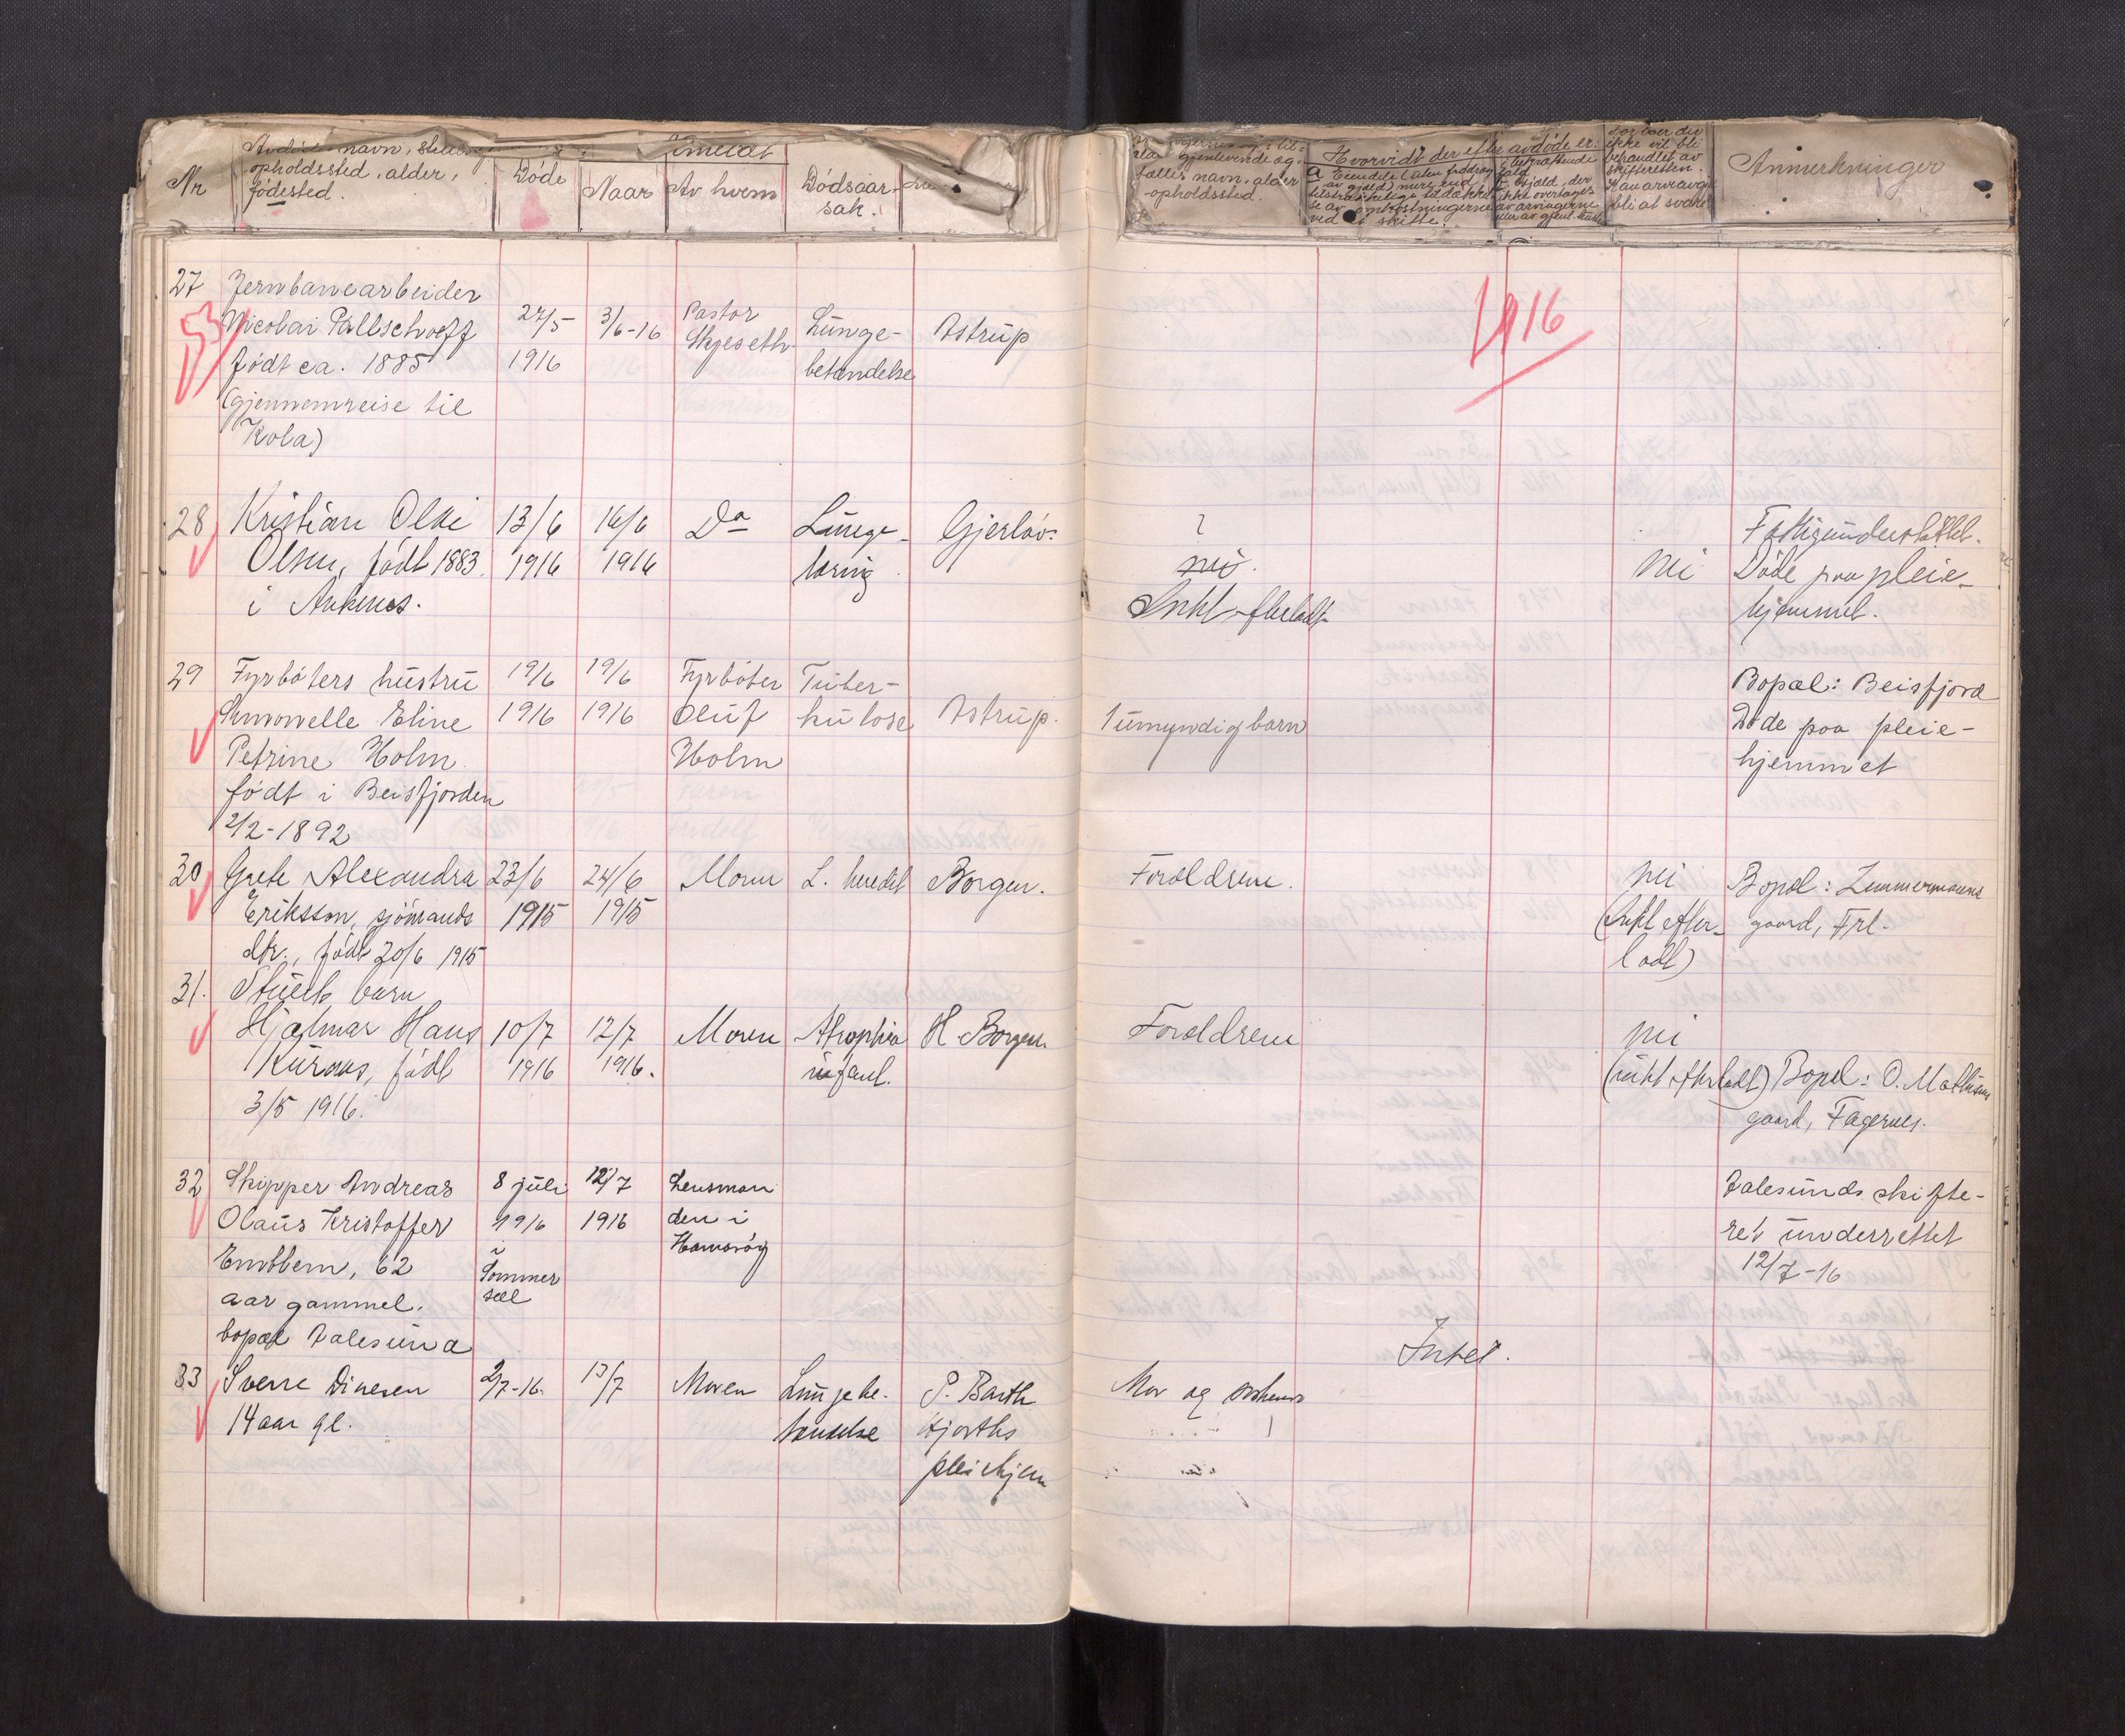 Nr
navn,
opholdssted, alder,
fødested.
Døde
Naar
Av hvem
Dødsaar-
sak.
fælles navn, alder
opholdssted.
Hvorvidt der efter avdøde er:
ved skifte.
behandlet av
skifteretten.
Anmerkninger
1916
27
53
Jernbanearbeider
Nicolai
født ca. 1885
(gjennemreise til
Kola)
27/5
1916
3/6-16
Pastor
Skjeseth
Lunge-
betændelse
Astrup
28
Kristian
Olsen, født 1883
i Ankenes.
13/6
1916
16/6
1916
Do
Lunge-
tæring
Gjerløv
?
nei.
Intet efterladt
nei
Fattigunderstøttet.
Døde paa pleie-
hjemmet.
29
Fyrbøters hustru
Eline
Petrine Holm
født i Beisfjorden
2/2-1892
19/6
1916
19/6
1916
Fyrbøter
Oluf
Holm
Tuber-
kulose
Astrup.
1 umyndig barn
Bopæl: Beisfjord
Døde paa pleie-
hjemmet
30
Grete Alexandra
Eriksson, sjømands
dtr., født 20/6 1915
23/6
1915
24/6
1915
Moren
L. heredit
Borgen.
Forældrene.
nei
(Intet efter-
ladt)
Bopæl: Zimmermanns
gaard, Frl.
31.
barn
Hjalmar Hans
født
3/5 1916.
10/7
1916
12/7
1916.
Moren
Atrophia
infant.
H Borgen
Forældrene
nei
(intet efterladt)
Bopæl: O. Mathisens
gaard, Fagernes.
32
Skipper Andreas
Olaus Kristoffer
Emblem, 62
aar gammel.
bopæl Aalesund
8 juli
1916
Sommer
sæl
12/7
1916
Lensman
den i
Hamarøy
Aalesunds skifte-
ret underrettet
12/7-16
33
Sverre Dinesen
14 aar gl.
2/7-16.
13/7
Moren
Lungebe-
tændelse
P. Barth
Hjorths
pleiehjem
Mor og søskend
Intet.